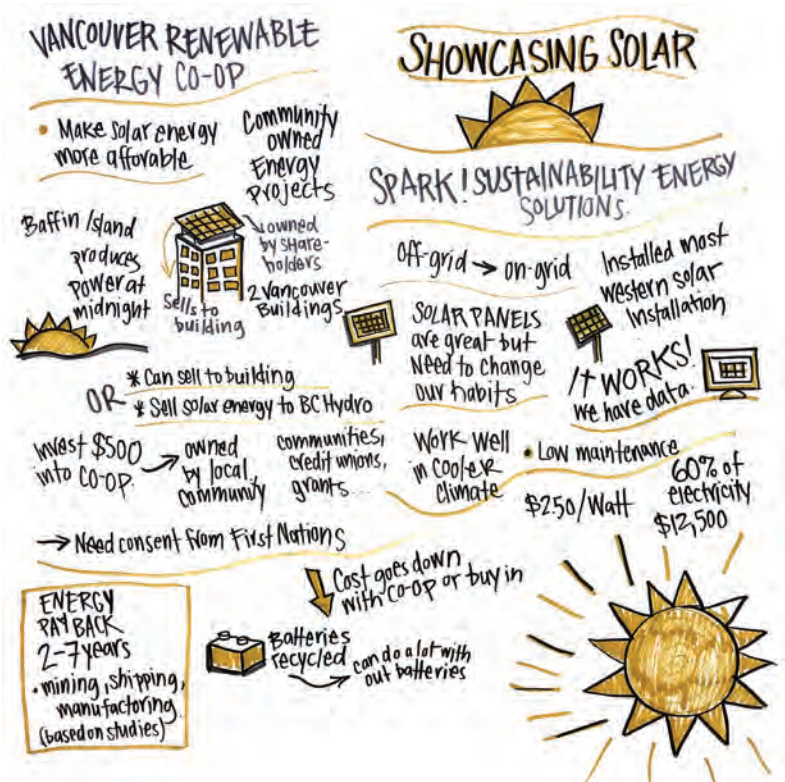 VANCOUVER RENEWABLE
ENERGY CO-OP
• Make solar energy
more afforable
Community
owned
Energy
Projects
Baffin Island
produces
Power at
midnight
Sells to
building
owned
by share-
holders
2 Vancouver
Buildings
* Can sell to building
OR
* Sell solar energy to BC Hydro
Invest $500
into CO-OP
owned
by local
community
communities,
credit unions,
grants...
→ Need consent from First Nations
ENERGY
PAYBACK
2-7 years
• mining, shipping,
manufactoring
(based on studies)
Cost goes down
with co-op or buy in
Batteries
recycled
can do a lot with
out batteries
SHOWCASING SOLAR
SPARK! SUSTAINABILITY ENERGY
SOLUTIONS.
Off-grid → on-grid
Installed most
western solar
Installation
SOLAR PANELS
are great but
Need to change
our habits
IT WORKS!
we have data.
Work Well
in cooler
climate
• Low maintenance
$2.50/Watt
60% of
electricity
$12,500